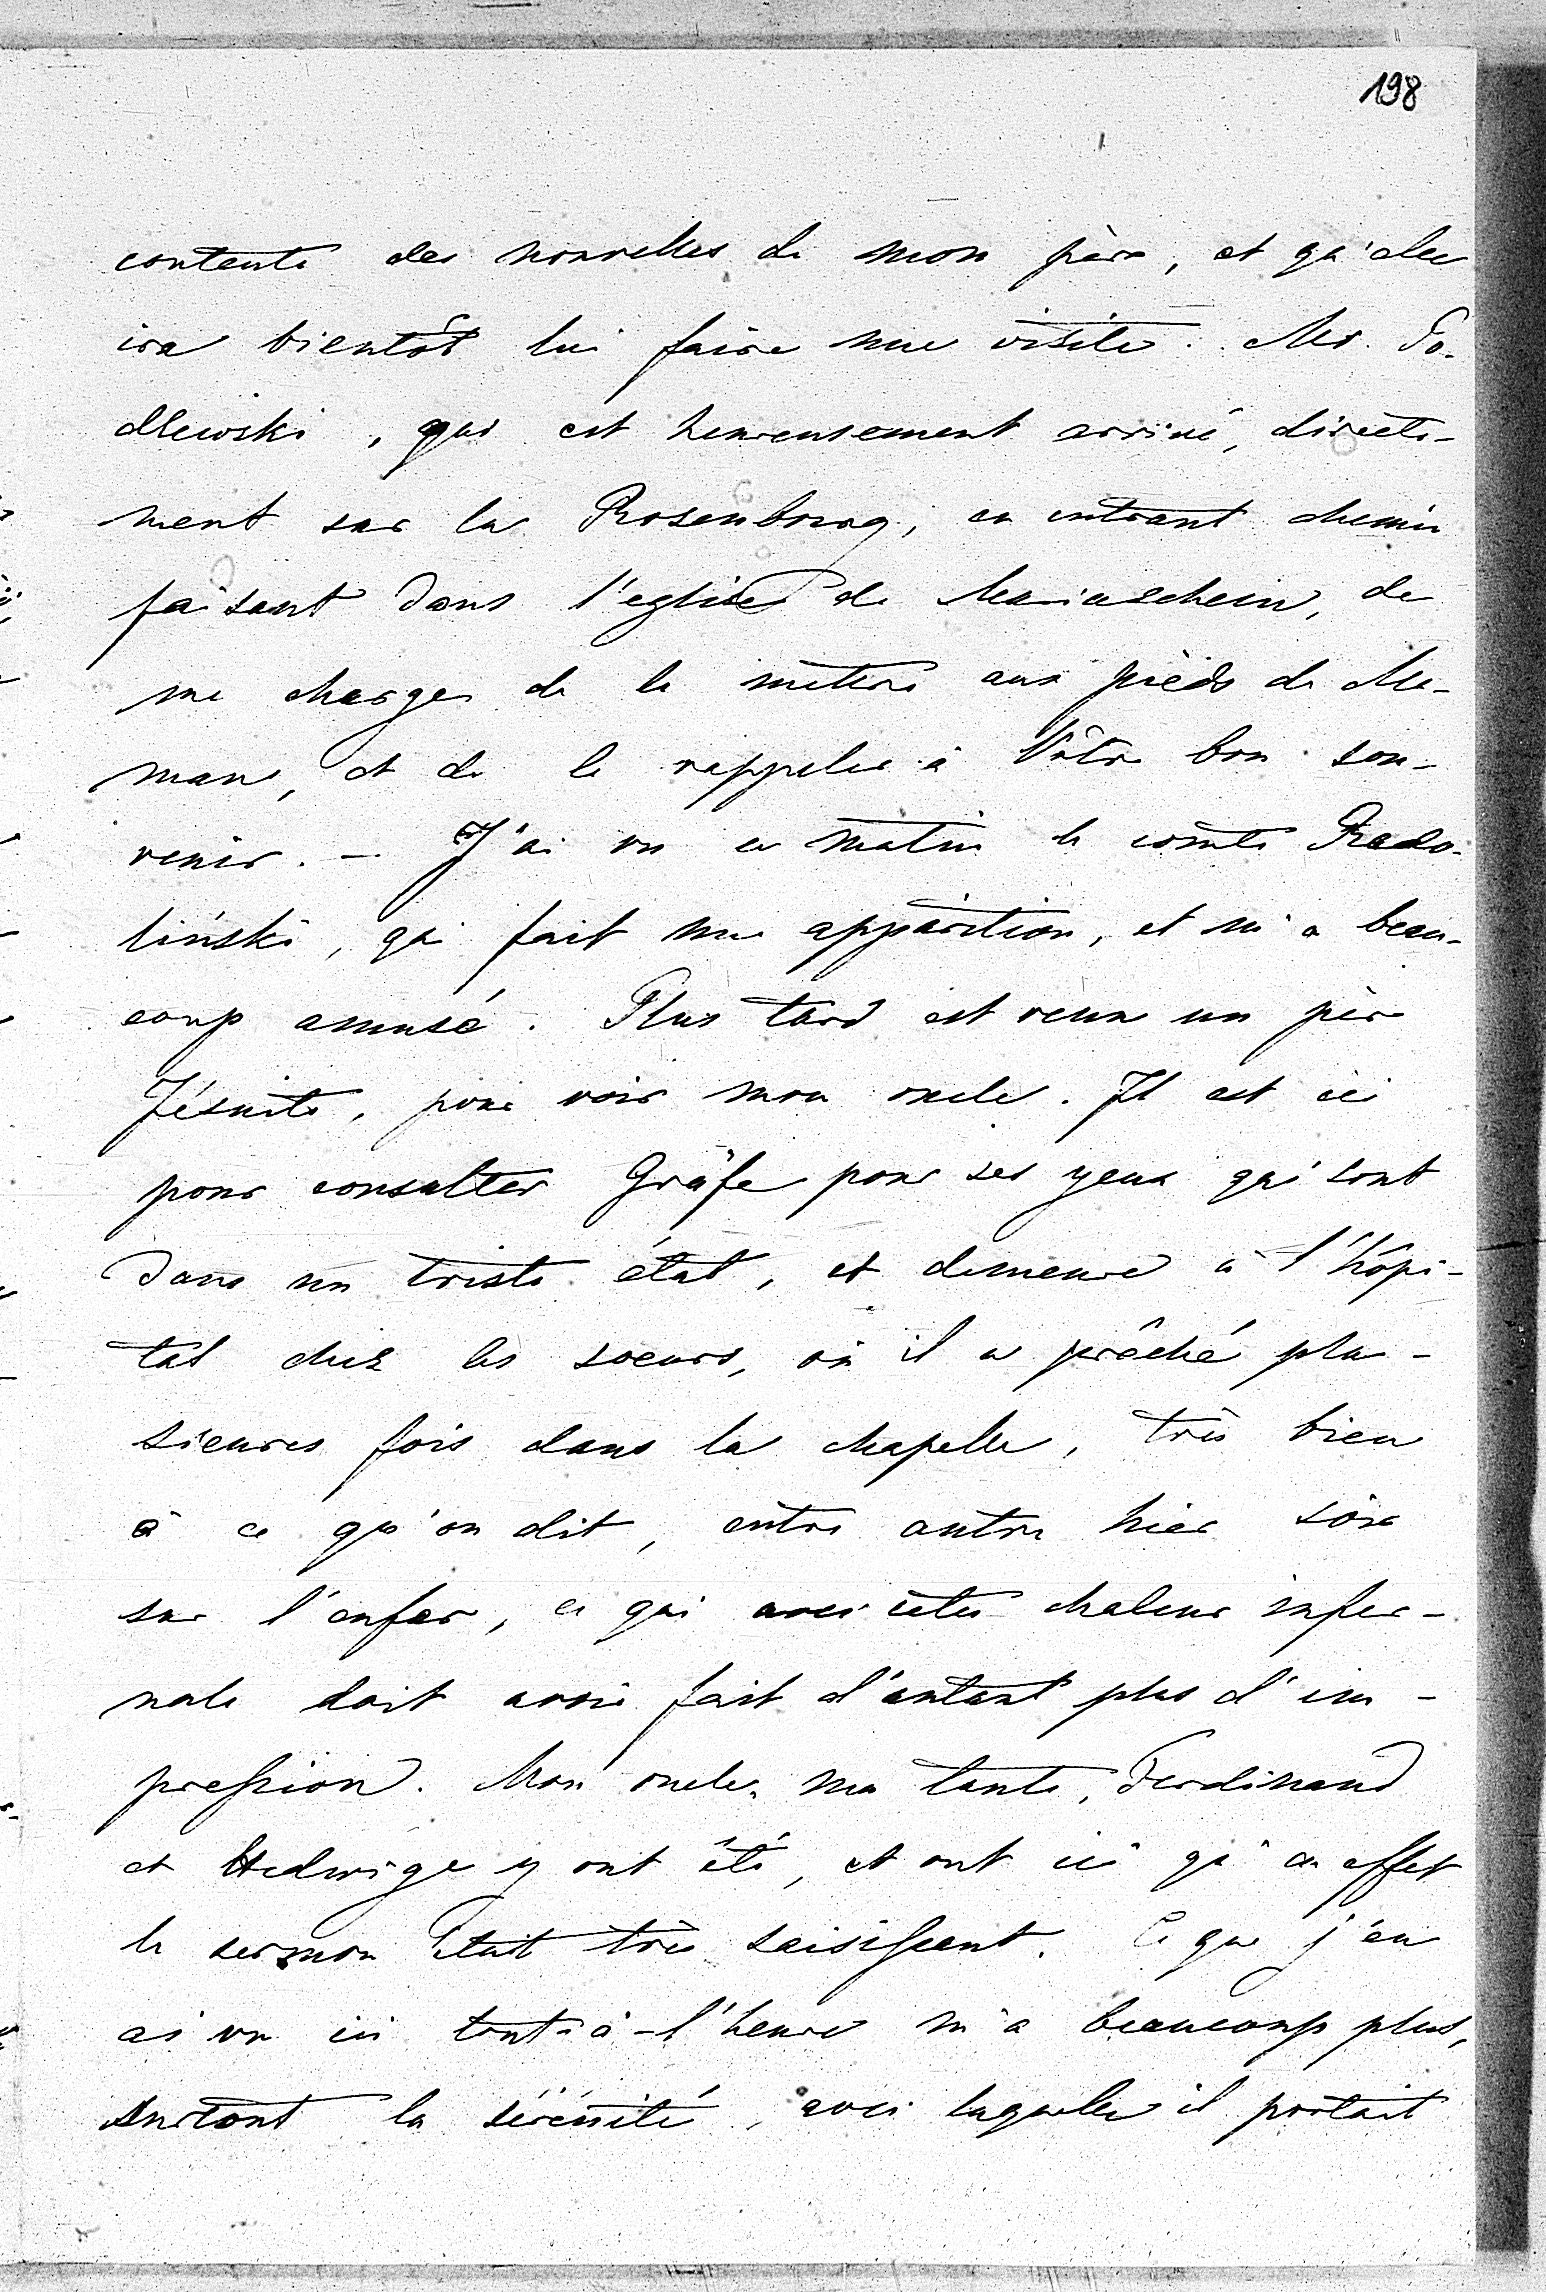 198
contente des nouvelles de mon père, et qu'elle
ira bientôt lui faire une visite. Mr. Go-
dlewski, qui est heureusement arrivé, directe-
ment sur la Rosenbourg, en entrant chemin
faisant dans l'eglise de Mariaschein, de
me charge de le mettre aux pièds de Ma-
man, et de le rappeler à Vôtre bon sou-
venir. – J'ai vu ce matin le comte Rado-
liński, qui fait une apparition, et m'a beau-
coup amusé. Plus tard est venu un père
Jésuite, pour voir mon oncle. Il est ici
pour consulter Gräfe pour ses yeux qui sont
dans un triste état, et demeure à l'hôpi-
tal chez les soeurs, où il a prêché plu-
sieures fois dans la chapelle, très bien
à ce qu'on dit, entre autre hier soir
sur l'enfer, ce qui avec cette chaleur infer-
nale doit avoir fait d'autant plus d'im-
pression. Mon oncle, ma tante, Ferdinand
et Hedwige y ont été, et ont qu'en effet
le sermon était très saisissant. Ce que j'en
ai vu ici tout-à-l'heure m'a beaucoup plus,
surtout la sérénité, avec laquelle il portait